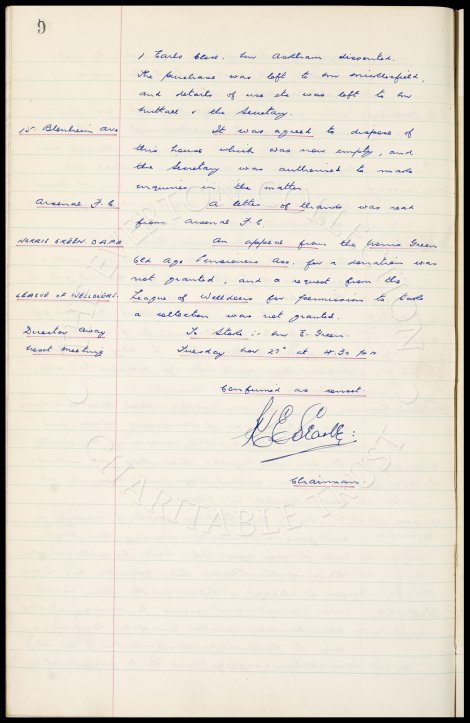 9
1 Earls Close. Mr Askham dissented.
The purchase was left to Mr Micklesfield,
and details of use etc was left to Mr
Nuttall & the Secretary.
15. Blenheim Ave
It was agreed to dispose of
this house which was now empty, and
the Secretary was authorised to make
enquiries in the matter.
Arsenal F.C.
A letter of thanks was read
from Arsenal F C
NORRIS GREEN. O.A.P.A
An appeal from the Norris Green
Old Age Pensioners Ass. for a donation was
not granted, and a request from the
LEAGUE OF WELLDOERS.
League of Welldoers for permission to take
a collection was not granted.
Director Away
To Stoke :- Mr E. Green.
Next Meeting
Tuesday Nov 27th at 4.30 pm
Confirmed as correct.
Chairman.
THE EVERTON COLLECTION
CHARITABLE TRUST